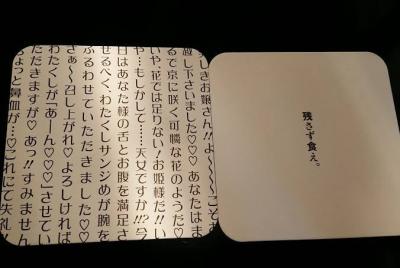 しきお嬢さん!!よ〜〜〜こそお
越し下さいました♡♡♡あなたはま
るで京に咲く可憐な花のようだ♡
いや、花では足りない!お姫様だ!!い
や…もしかして……天女ですか!?今
日はあなた様の舌とお腹を満足さ
せるべく、わたくしサンジめが腕を
ふるわせていただきました♡
さぁ〜召し上がれ♡よろしければ
わたくしが「あーん♡♡♡」させてい
ただきますが♡あっ!!すみません
ちょっと鼻血が…♡これにて失礼
残さず食え。